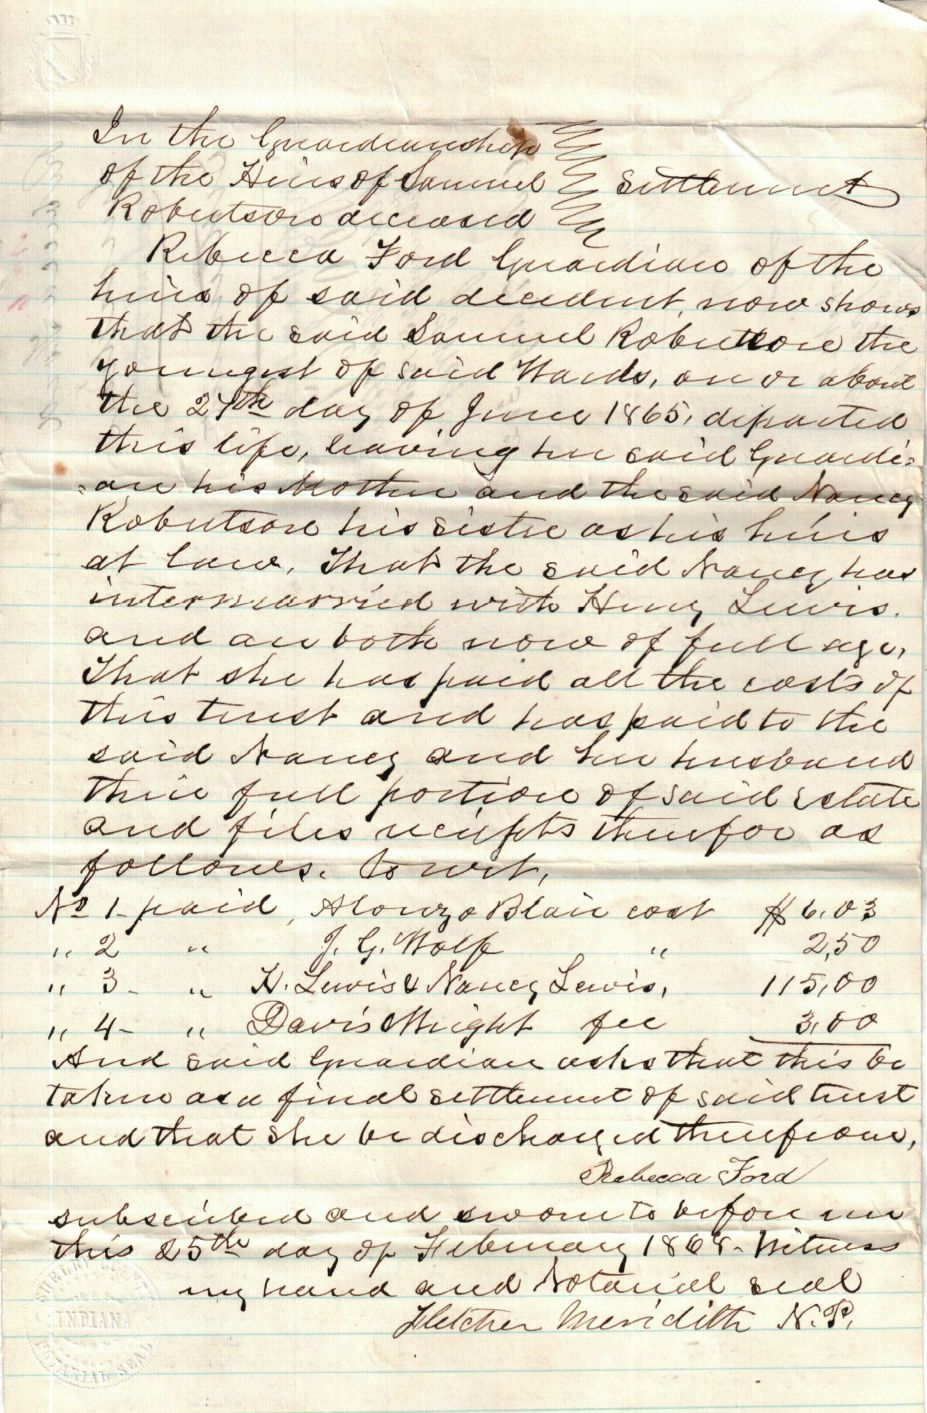 In the Guardianship
of the Heirs of Samuel Settlement
Robertson deceased
Rebecca Ford Guardian of the
heirs of said decedent, now shows
that the said Samuel Robertson the
youngest of said Wards, on or about
the 27th day of June 1865, departed
this life, leaving her said Guardi=
=an his Mother and the said Nancy
Robertson his sister as his heirs
at law, That the said Nancy has
intermarried with Henry Lewis.
and are both now of full age,
That she has paid all the costs of
this trust and has paid to the
said Nancy and her husband
their full portion of said Estate
and files receipts therefor as
follows. to wit,
No 1 - paid, Alonzo Blair cost $6.03
,, 2 ,, J. G. Wolfe ,, 2,50
,, 3 - ,, H. Lewis & Nancy Lewis, 115,00
,, 4 - ,, Davis & Wright fee 3,00
And said Guardian asks that this be
taken as a final settlement of said trust
and that she be discharged therefrom,
Rebecca Ford
subscribed and sworn to before me
this 25th day of February 1868 - Witness
my hand and Notarial seal
Fletcher Meridith N. P.
SHELBY COUNTY
INDIANA
NOTARIAL SEAL